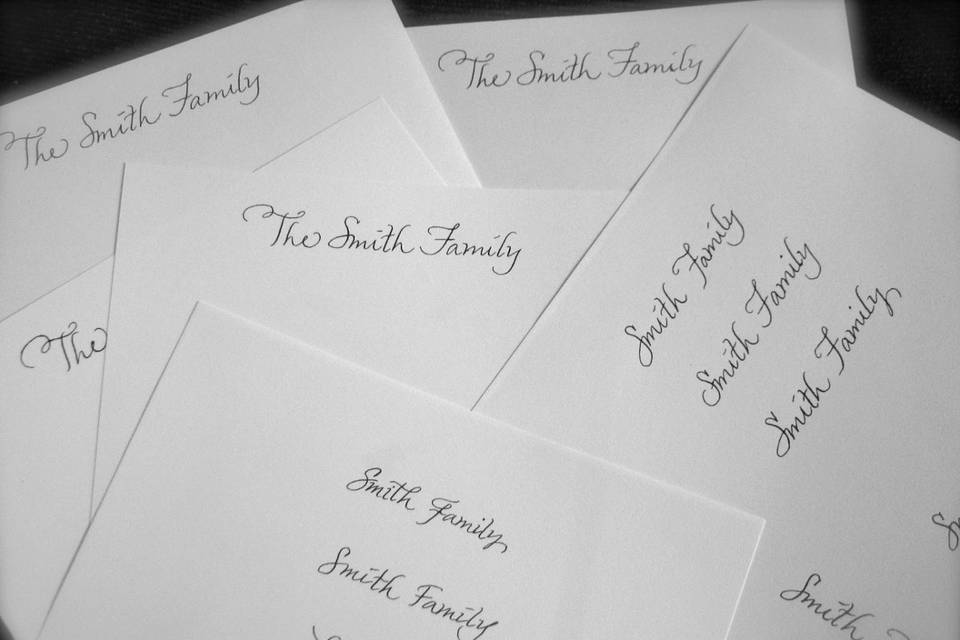 The Smith Family
The Smith Family
The Smith Family
The
Smith Family
Smith Family
Smith Family
Smith Family
Smith Family
Smith